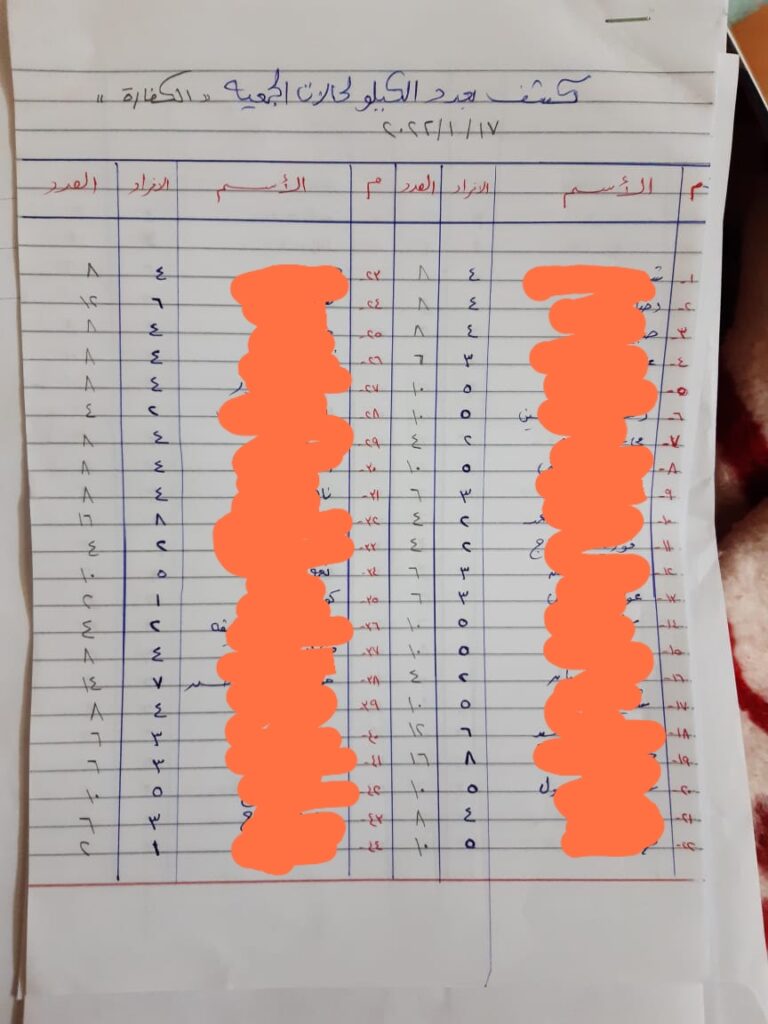 كشف بعدد الكيلو لحالات الجمعيه « الكفارة »
٢٠٢٢/١/١٧
م الأسم الافراد العدد م الأسم الافراد العدد
١- ٤ ٨ ٢٣- ٤ ٨
٢- ٤ ٨ ٢٤- ٦ ١٢
٣- ٤ ٨ ٢٥- ٤ ٨
٤- ٣ ٦ ٢٦- ٤ ٨
٥- ٥ ١٠ ٢٧- ٤ ٨
٦- ٥ ١٠ ٢٨- ٢ ٤
٧- ٢ ٤ ٢٩- ٤ ٨
٨- ٥ ١٠ ٣٠- ٤ ٨
٩- ٣ ٦ ٣١- ٤ ٨
١٠- ٢ ٤ ٣٢- ٨ ١٦
١١- ٢ ٤ ٣٣- ٢ ٤
١٢- ٣ ٦ ٣٤- ٥ ١٠
١٣- ٣ ٦ ٣٥- ١ ٢
١٤- ٥ ١٠ ٣٦- ٢ ٤
١٥- ٥ ١٠ ٣٧- ٤ ٨
١٦- ٢ ٤ ٣٨- ٧ ١٤
١٧- ٥ ١٠ ٣٩- ٤ ٨
١٨- ٦ ١٢ ٤٠- ٣ ٦
١٩- ٨ ١٦ ٤١- ٣ ٦
٢٠- ٥ ١٠ ٤٢- ٥ ١٠
٢١- ٤ ٨ ٤٣- ٣ ٦
٢٢- ٥ ١٠ ٤٤- ١ ٢